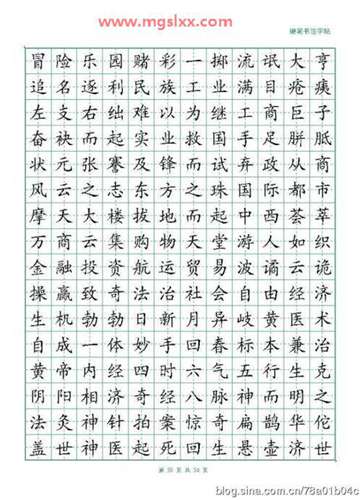 www.mgslxx.com
硬笔书法字帖
冒险乐园赌彩一掷流氓大亨
追名逐利民族工业满目疮痍
左支右绌难以为继工商巨子
奋袂而起实业救国手足胼胝
状元张謇及锋而试弃政从商
风云之志东方之珠国际都市
摩天大楼拔地而起中西荟萃
万商云集购物天堂游人如织
金融投资航运贸易波谲云诡
操赢致奇法治社会自由经济
生机勃勃日新月异岐黄医术
自成一体妙手回春标本兼治
黄帝内经四时六气五行生克
阴阳相济奇经八脉神而明之
法灸神针拍案惊奇扁鹊华佗
盖世神医起死回生悬壶济世
blog.sina.com.cn/78a01b04c